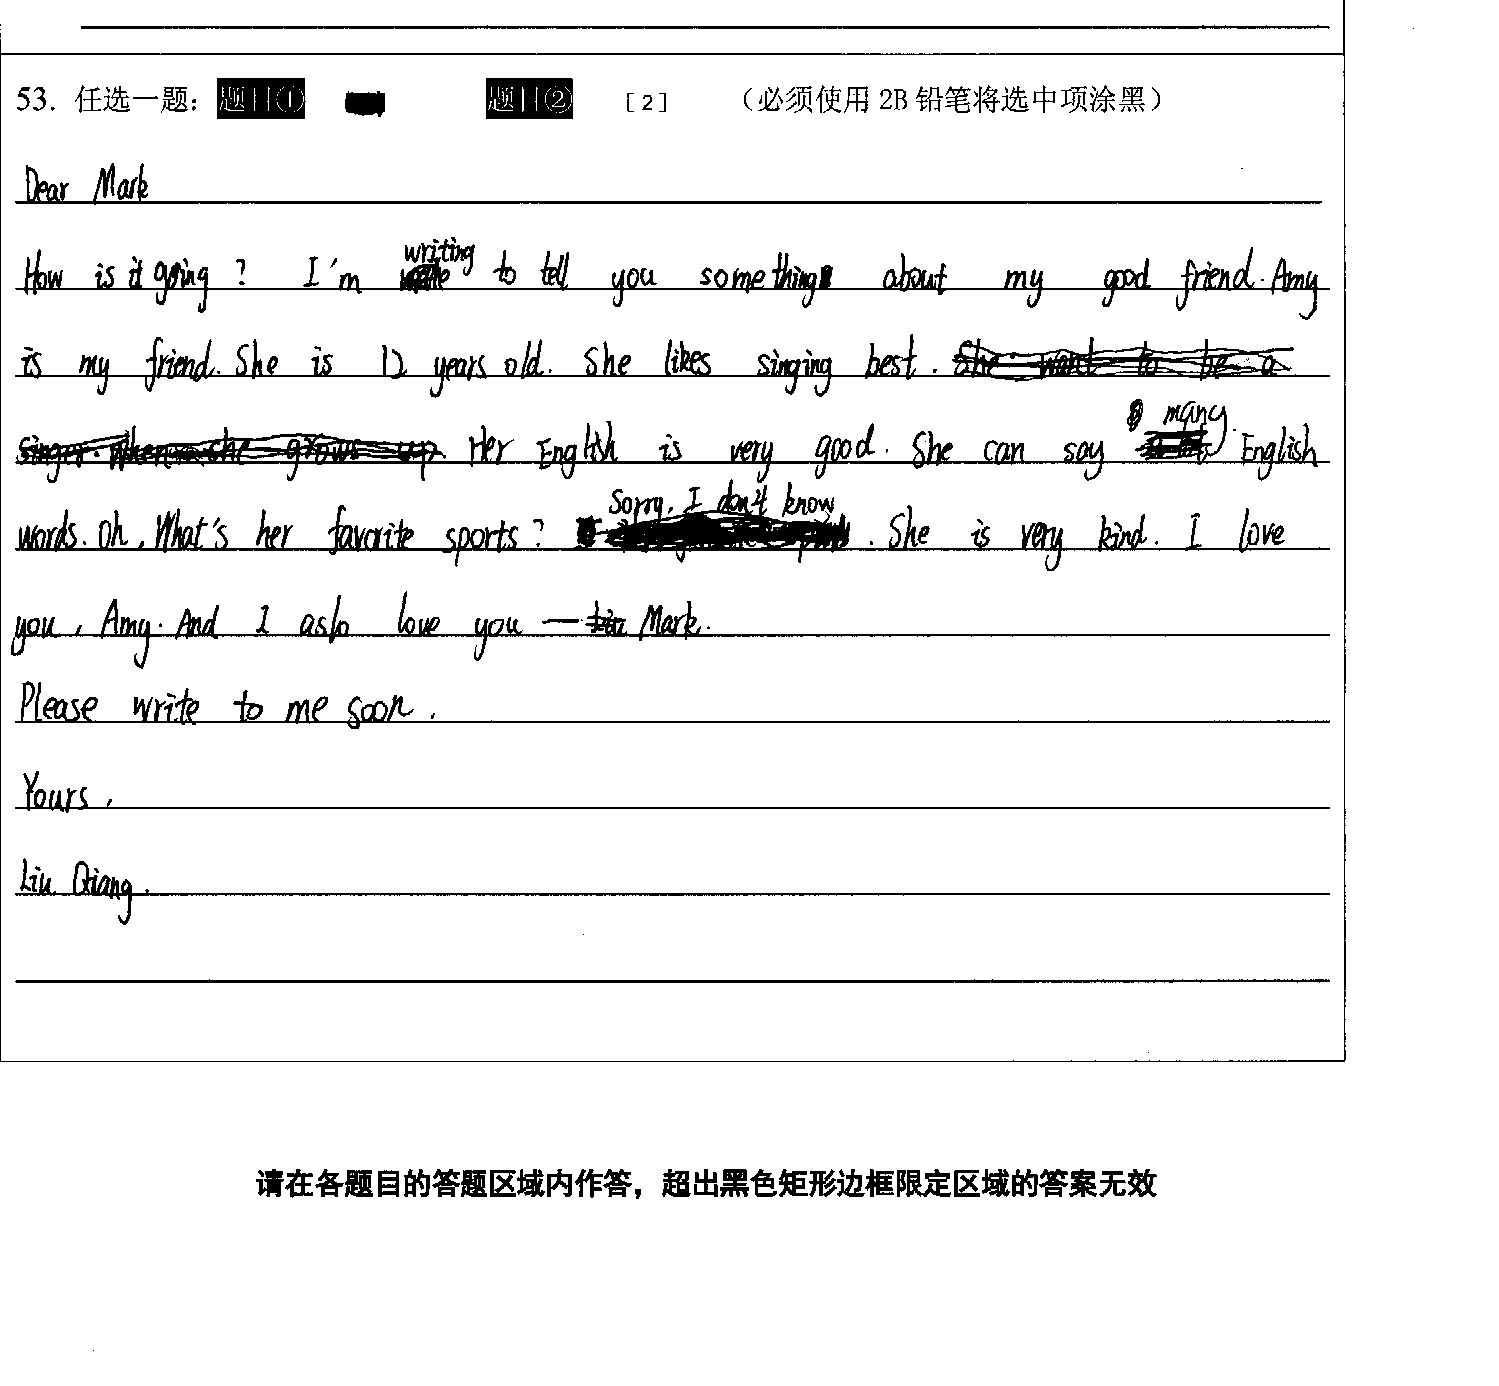 53. 任选一题： 题目① 题目② [2] （必须使用 2B 铅笔将选中项涂黑）
Dear Mark
How is it going? I'm writing to tell you something about my good friend. Amy
is my friend. She is 12 years old. She likes singing best. She want to be a
singer when she grows up Her English is very good. She can say many English
words. Oh, What's her favorite sports? Sorry, I don't know. She is very kind. I love
you, Amy. And I aslo love you — Mark.
Please write to me soon.
Yours,
Liu Qiang.
请在各题目的答题区域内作答，超出黑色矩形边框限定区域的答案无效